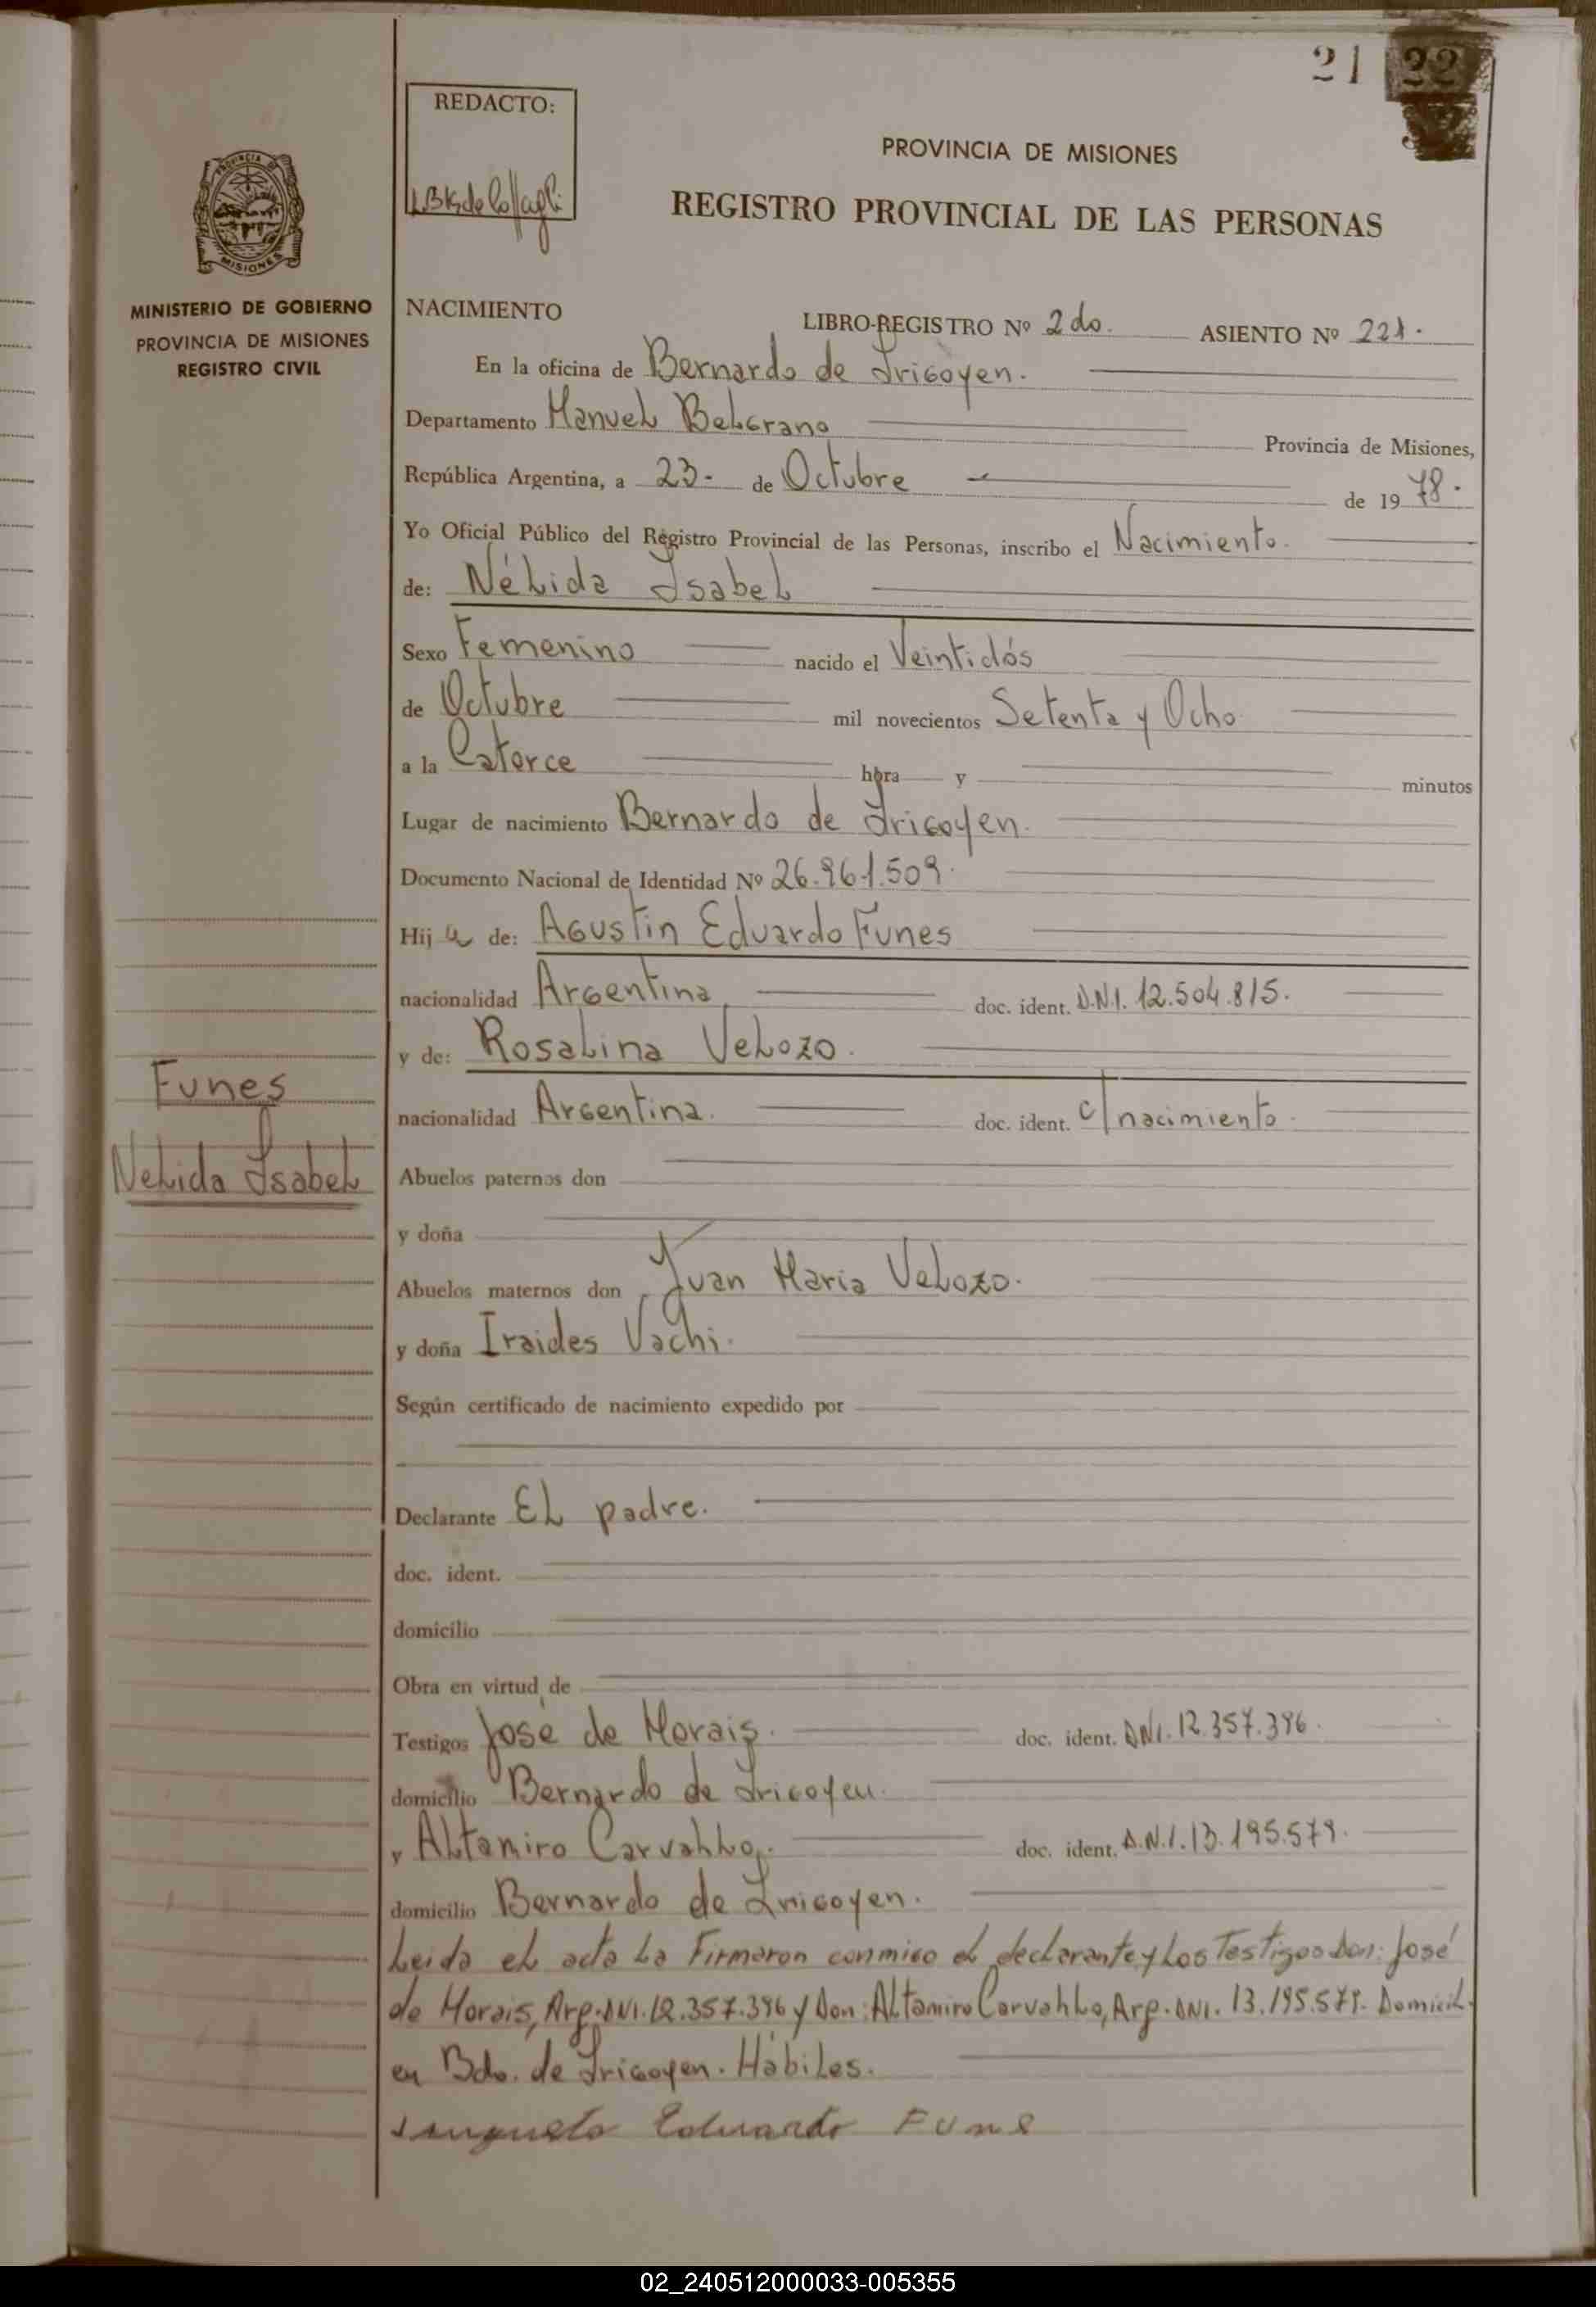 21 22
REDACTO:
PROVINCIA DE MISIONES
REGISTRO PROVINCIAL DE LAS PERSONAS
PROVINCIA DE
MISIONES
MINISTERIO DE GOBIERNO
PROVINCIA DE MISIONES
REGISTRO CIVIL
NACIMIENTO
LIBRO-REGISTRO Nº 2do. ASIENTO Nº 221.
En la oficina de Bernardo de Irigoyen.
Departamento Manuel Belgrano Provincia de Misiones,
República Argentina, a 23- de Octubre de 19 78.
Yo Oficial Público del Registro Provincial de las Personas, inscribo el Nacimiento.
de: Nélida Isabel
Sexo Femenino nacido el Veintidós
de Octubre mil novecientos Setenta y Ocho
a la Catorce hora y minutos
Lugar de nacimiento Bernardo de Irigoyen.
Documento Nacional de Identidad Nº 26.961.509.
Hij a de: Agustin Eduardo Funes
nacionalidad Argentina doc. ident. D.N.I. 12.504.815.
y de: Rosalina Velozo.
nacionalidad Argentina. doc. ident. c/nacimiento.
Funes
Nelida Isabel
Abuelos paternos don
y doña
Abuelos maternos don Juan Maria Velozo.
y doña Iraides Vachi.
Según certificado de nacimiento expedido por
Declarante El padre.
doc. ident.
domicilio
Obra en virtud de
Testigos José de Morais. doc. ident. DNI. 12.357.396.
domicilio Bernardo de Irigoyen.
y Altamiro Carvahlo. doc. ident. D.N.I. 13.195.579.
domicilio Bernardo de Irigoyen.
Leida el acta La Firmaron conmigo el declarante y Los Testigos Don: José
de Morais, Arg. DNI. 12.357.396 y Don: Altamiro Carvahlo, Arg. DNI. 13.195.579. Domicil.
en Bdo. de Irigoyen. Hábiles.
Eduardo Fune
02_240512000033-005355